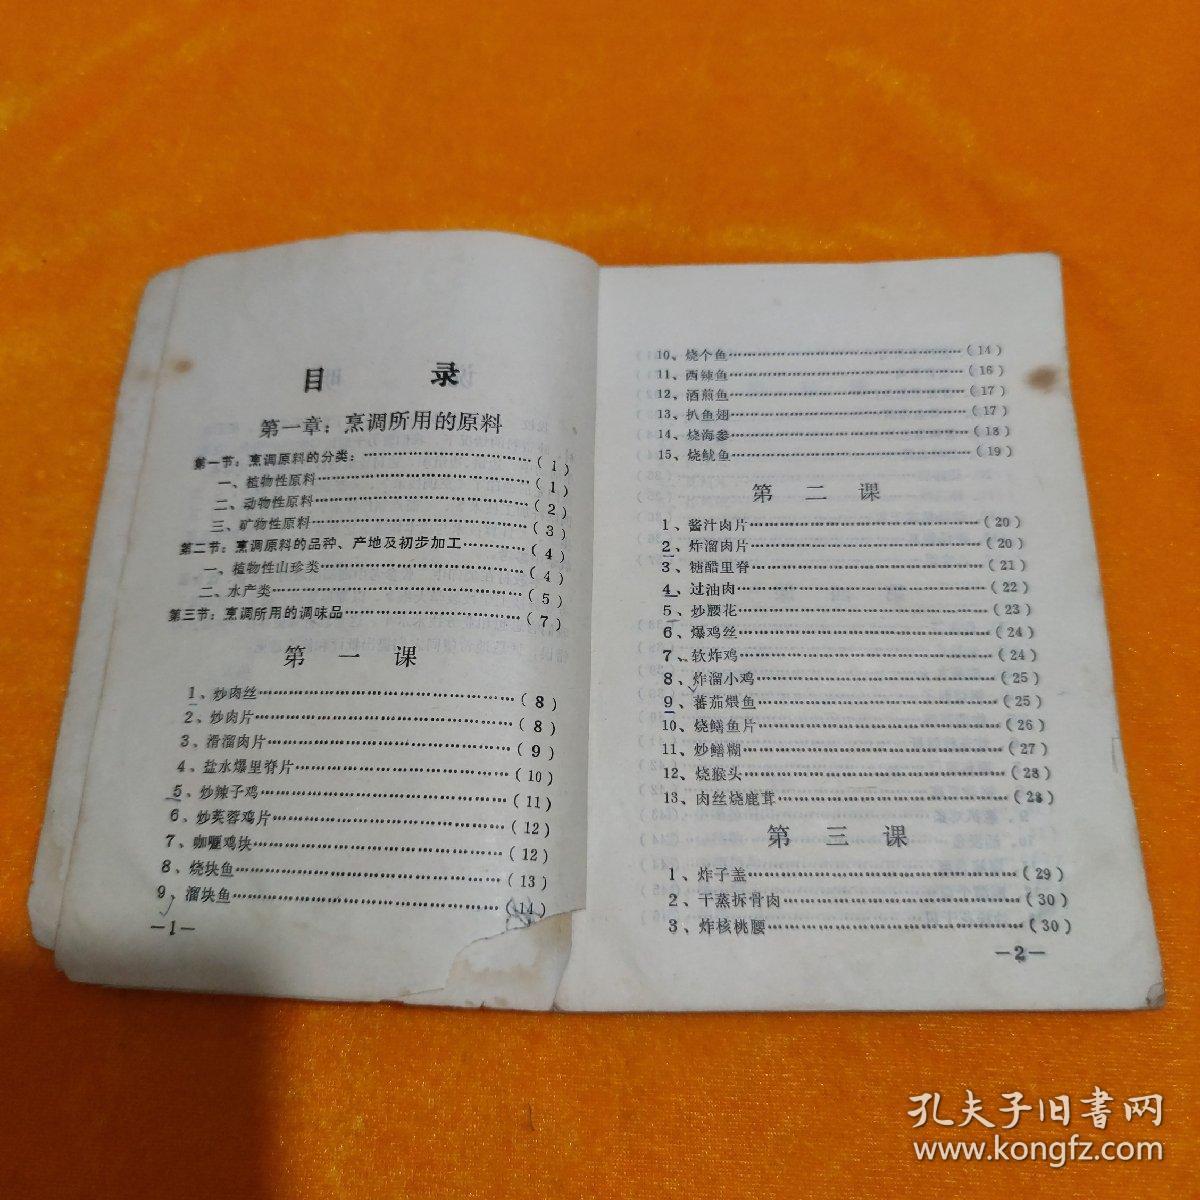 目 录
第一章：烹调所用的原料
第一节：烹调原料的分类：……………………（1）
一、植物性原料……………………（1）
二、动物性原料……………………（2）
三、矿物性原料……………………（3）
第二节：烹调原料的品种、产地及初步加工…………（4）
一、植物性山珍类……………………（4）
二、水产类……………………（5）
第三节：烹调所用的调味品……………………（7）
第 一 课
1、炒肉丝……………………（8）
2、炒肉片……………………（8）
3、滑溜肉片……………………（9）
4、盐水爆里脊片……………………（10）
5、炒辣子鸡……………………（11）
6、炒芙蓉鸡片……………………（12）
7、咖喱鸡块……………………（12）
8、烧块鱼……………………（13）
9、溜块鱼……………………（14）
—1—
10、烧个鱼……………………（14）
11、西辣鱼……………………（16）
12、酒煎鱼……………………（17）
13、扒鱼翅……………………（17）
14、烧海参……………………（18）
15、烧鱿鱼……………………（19）
第 二 课
1、酱汁肉片……………………（20）
2、炸溜肉片……………………（20）
3、糖醋里脊……………………（21）
4、过油肉……………………（22）
5、炒腰花……………………（23）
6、爆鸡丝……………………（24）
7、软炸鸡……………………（24）
8、炸溜小鸡……………………（25）
9、蕃茄煨鱼……………………（25）
10、烧鳝鱼片……………………（26）
11、炒鳝糊……………………（27）
12、烧猴头……………………（28）
13、肉丝烧鹿茸……………………（28）
第 三 课
1、炸子盖……………………（29）
2、干蒸拆骨肉……………………（30）
3、炸核桃腰……………………（30）
—2—
孔夫子旧書网
www.kongfz.com